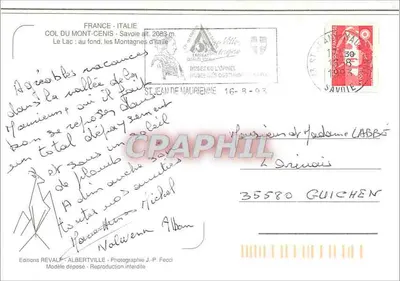 FRANCE - ITALIE
COL DU MONT-CENIS - Savoie alt. 2083 m
Le Lac : au fond, les Montagnes d'Italie
Agréables vacances
dans la vallée de la
Maurienne où il fait
bon se reposer dans
un total dépaysement
et sous un soleil
de plomb
A dimanche
toutes nos amitiés
Michel
Nolwenn Alban
ST JEAN DE MAURIENNE 16-8-93
SAVOIE
CPRAPHIL
Monsieur et Madame LABBÉ
35580 GUICHEN
Editions REVALP - ALBERTVILLE - Photographie J.-P. Fecci
Modèle déposé - Reproduction interdite